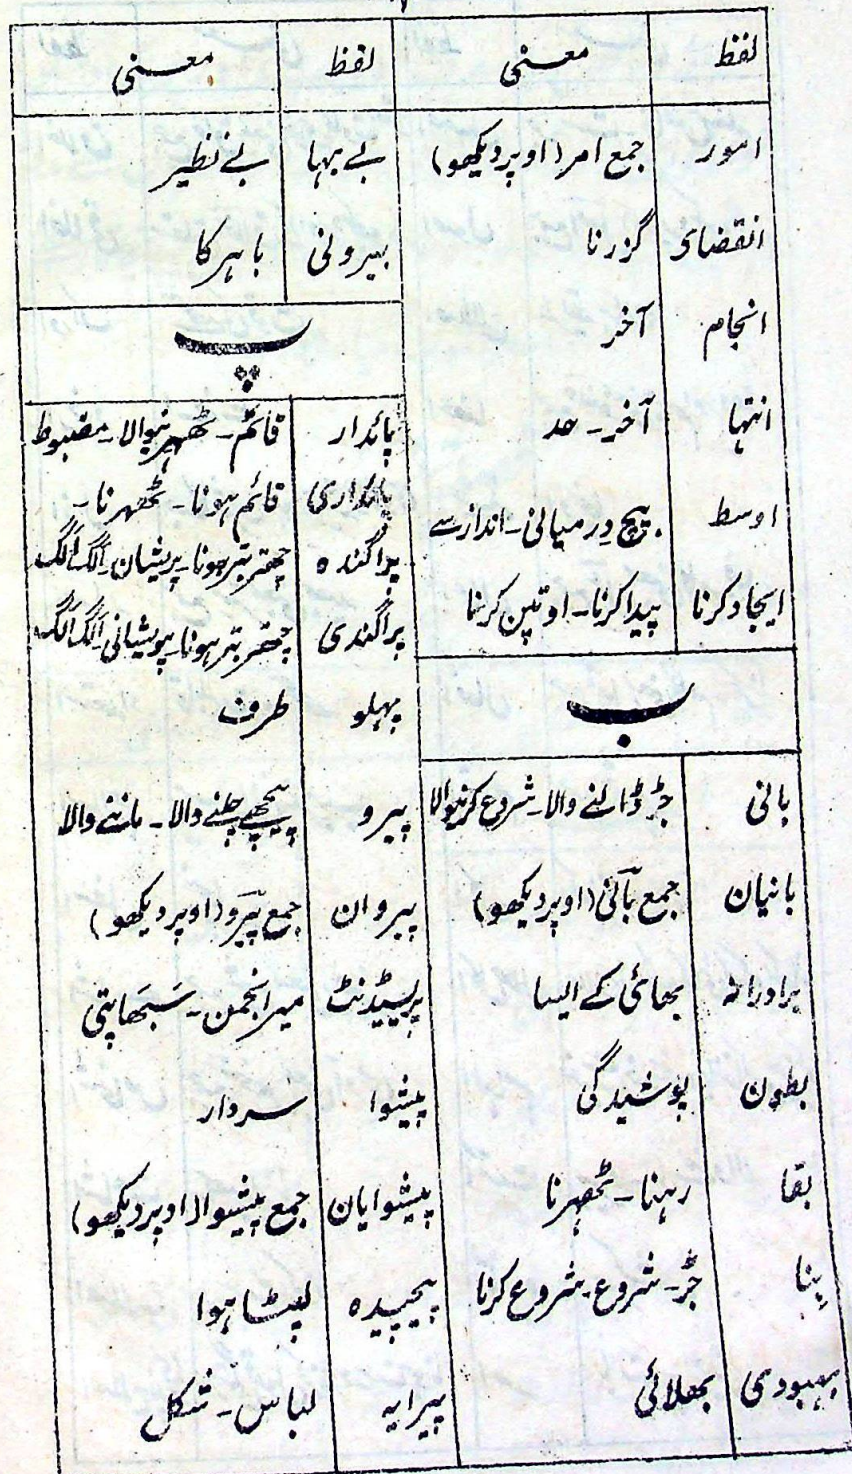 لفظ معنی
امور جمع امر (اوپر دیکھو)
انقضای گزرنا
انجام آخر
انتہا آخر۔ حد
اوسط بیچ درمیانی۔ اندازسے
ایجاد کرنا پیدا کرنا۔ اوتپن کرنا
ب
بانی جڑ ڈالنے والا۔ شروع کرنیوالا
بانیان جمع بانی (اوپر دیکھو)
برادرانہ بھائی کے ایسا
بطون پوشیدگی
بقا رہنا۔ ٹھہرنا
بِنا جڑ۔ شروع۔ شروع کرنا
بہبودی بھلائی
لفظ معنی
بے بہا بے نظیر
بیرونی باہر کا
پ
پائدار قائم۔ ٹھہرنیوالا۔ مضبوط
پائداری قائم ہونا۔ ٹھہرنا۔
پراگندہ چھتر بتر ہونا۔ پریشان۔ الگ الگ
پراگندی چھتر بتر ہونا۔ پریشانی۔ الگ الگ
پہلو طرف
پیرو پیچھے چلنے والا۔ ماننے والا
پیروان جمع پیرو (اوپر دیکھو)
پریسیڈنٹ میر انجمن۔ سَبھَاپتی
پیشوا سردار
پیشوایان جمع پیشوا (اوپر دیکھو)
پیچیدہ لپٹا ہوا
پیرایہ لباس۔ شکل